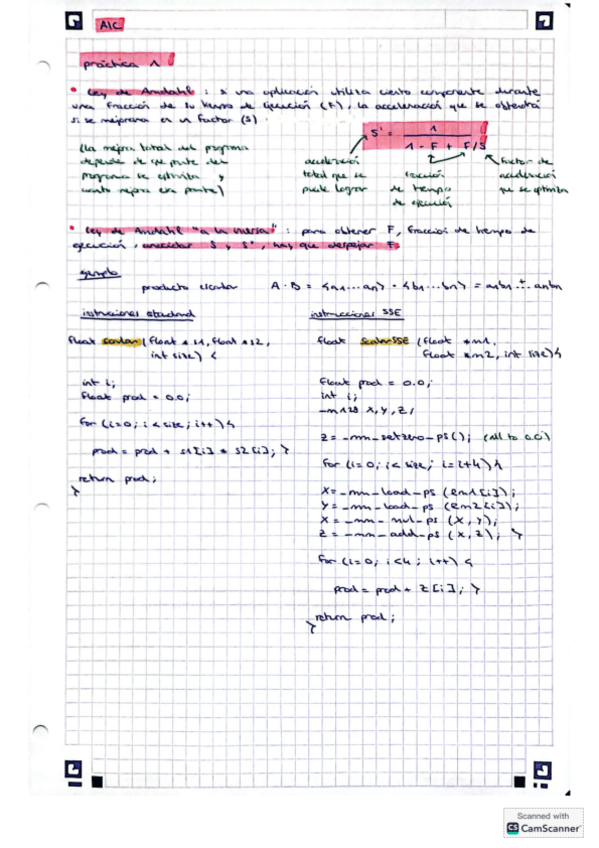 AIC
práctica 1
• Ley de Amdahl : si una aplicación utiliza cierto componente durante
una fracción de su tiempo de ejecución (F), la aceleración que se obtendrá
si se mejorara en un factor (S) :
S' = 1 / 1 - F + F/S
(La mejora total del programa
depende de que parte del
programa se optimiza y
cuanto mejora esa parte)
aceleración
total que se
puede lograr
fracción
de tiempo
de ejecución
factor de
aceleración
que se optimiza
• Ley de Amdahl "a la inversa" : para obtener F, fracción de tiempo de
ejecución, S y S', hay que despejar F.
ejemplo
producto escalar A · B = <a1...an> · <b1...bn> = a1b1 +... anbn
instrucciones standard
float scalar (float * s1, float * s2,
int size) {
int i;
float prod = 0.0;
for (i=0; i < size; i++) {
prod = prod + s1[i] * s2[i]; }
return prod;
}
instrucciones SSE
float scalarSSE (float * m1,
float *m2, int size) {
float prod = 0.0;
int i;
_m128 X, Y, Z;
Z = _mm_setzero_ps(); (all to 0.0)
for (i=0; i < size; i=i+4) {
X = _mm_load_ps (&m1[i]);
Y = _mm_load_ps (&m2[i]);
X = _mm_mul_ps (X, Y);
Z = _mm_add_ps (X, Z); }
for (i=0; i<4; i++) {
prod = prod + Z[i]; }
return prod;
}
Scanned with
CS CamScanner